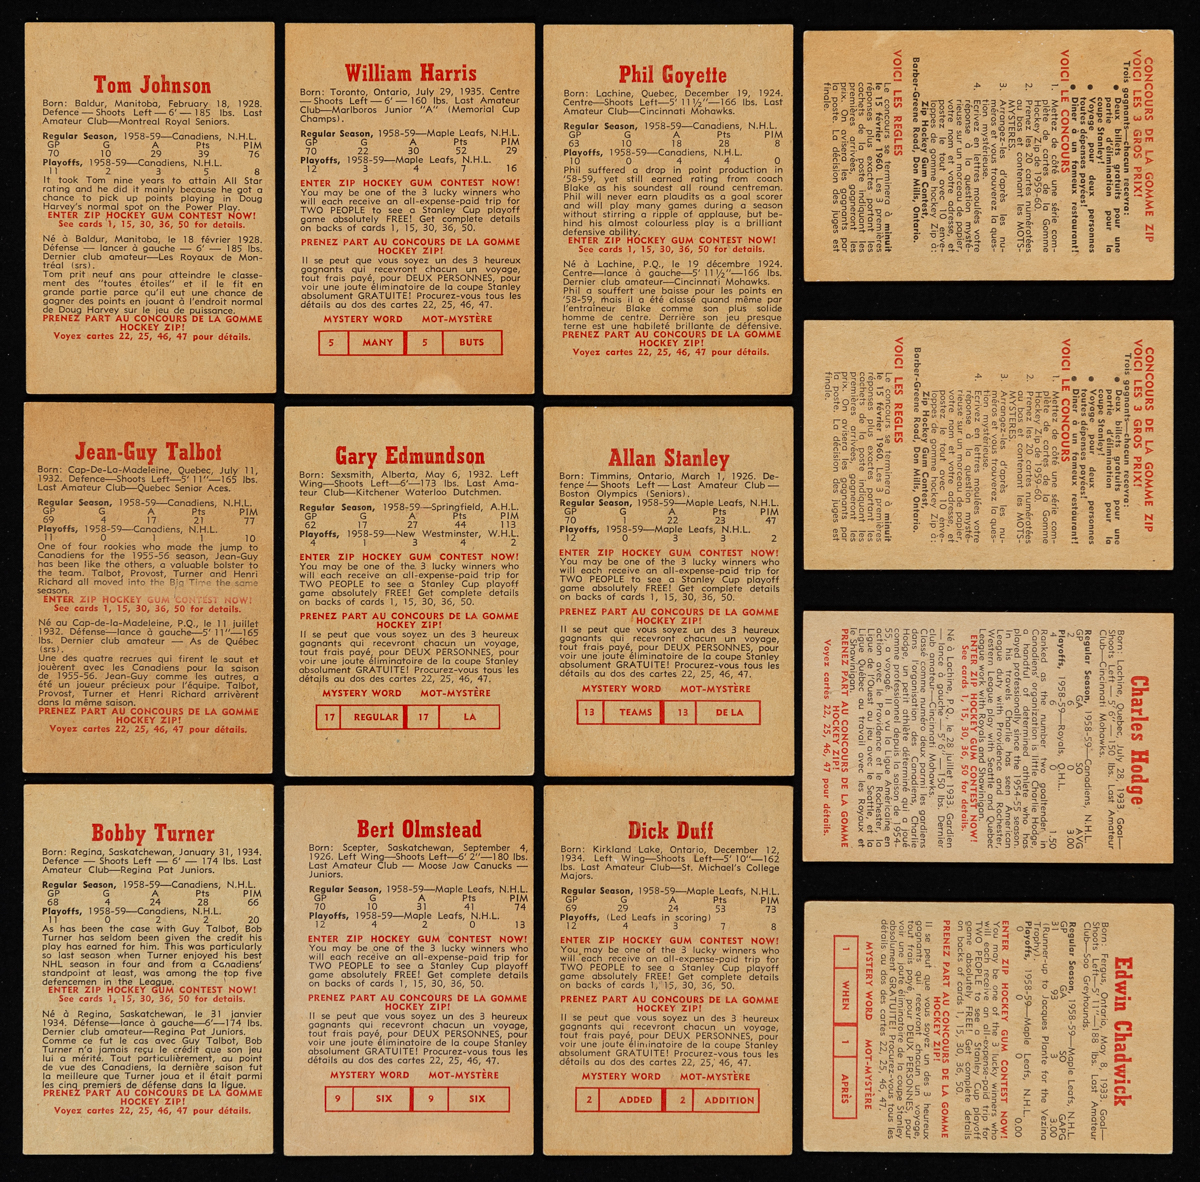 Tom Johnson
Born: Baldur, Manitoba, February 18, 1928.
Defence — Shoots Left — 6' — 185 lbs. Last
Amateur Club—Montreal Royal Seniors.
Regular Season, 1958-59—Canadiens, N.H.L.
GP G A Pts PIM
70 10 29 39 76
Playoffs, 1958-59—Canadiens, N.H.L.
11 2 3 5 8
It took Tom nine years to attain All Star
rating and he did it mainly because he got a
chance to pick up points playing in Doug
Harvey's normal spot on the Power Play.
ENTER ZIP HOCKEY GUM CONTEST NOW!
See cards 1, 15, 30, 36, 50 for details.
Né à Baldur, Manitoba, le 18 février 1928.
Défense — lancer à gauche — 6' — 185 lbs.
Dernier club amateur—Les Royaux de Mon-
tréal (srs).
Tom prit neuf ans pour atteindre le classe-
ment des "toutes étoiles" et il le fit en
grande partie parce qu'il eut une chance de
gagner des points en jouant à l'endroit normal
de Doug Harvey sur le jeu de puissance.
PRENEZ PART AU CONCOURS DE LA GOMME
HOCKEY ZIP!
Voyez cartes 22, 25, 46, 47 pour détails.
William Harris
Born: Toronto, Ontario, July 29, 1935. Centre
—Shoots Left — 6' — 160 lbs. Last Amateur
Club—Marlboros Junior "A" (Memorial Cup
Champs).
Regular Season, 1958-59—Maple Leafs, N.H.L.
GP G A Pts PIM
70 22 30 52 29
Playoffs, 1958-59—Maple Leafs, N.H.L.
12 3 4 7 16
ENTER ZIP HOCKEY GUM CONTEST NOW!
You may be one of the 3 lucky winners who
will each receive an all-expense-paid trip for
TWO PEOPLE to see a Stanley Cup playoff
game absolutely FREE! Get complete details
on backs of cards 1, 15, 30, 36, 50.
PRENEZ PART AU CONCOURS DE LA GOMME
HOCKEY ZIP!
Il se peut que vous soyez un des 3 heureux
gagnants qui recevront chacun un voyage,
tout frais payé, pour DEUX PERSONNES, pour
voir une joute éliminatoire de la coupe Stanley
absolument GRATUITE! Procurez-vous tous les
détails au dos des cartes 22, 25, 46, 47.
MYSTERY WORD MOT-MYSTÈRE
5 MANY 5 BUTS
Phil Goyette
Born: Lachine, Quebec, December 19, 1924.
Centre—Shoots Left—5' 11½"—166 lbs. Last
Amateur Club—Cincinnati Mohawks.
Regular Season, 1958-59—Canadiens, N.H.L.
GP G A Pts PIM
63 10 18 28 8
Playoffs, 1958-59—Canadiens, N.H.L.
10 0 4 4 0
Phil suffered a drop in point production in
'58-59, yet still earned rating from coach
Blake as his soundest all round centreman.
Phil will never earn plaudits as a goal scorer
and will play many games during a season
without stirring a ripple of applause, but be-
hind his almost colourless play is a brilliant
defensive ability.
ENTER ZIP HOCKEY GUM CONTEST NOW!
See cards 1, 15, 30, 36, 50 for details.
Né à Lachine, P.Q., le 19 décembre 1924.
Centre—lance à gauche—5' 11½"—166 lbs.
Dernier club amateur—Cincinnati Mohawks.
Phil a souffert une baisse pour les points en
'58-59, mais il a été classé quand même par
l'entraîneur Blake comme son plus solide
homme de centre. Derrière son jeu presque
terne est une habileté brillante de défensive.
PRENEZ PART AU CONCOURS DE LA GOMME
HOCKEY ZIP!
Voyez cartes 22, 25, 46, 47 pour détails.
CONCOURS DE LA GOMME ZIP
VOICI LES 3 GROS PRIX!
Trois gagnants—chacun recevra:
● Deux billets gratuits pour une
partie d'éliminatoire pour la
coupe Stanley!
● Voyage pour deux personnes
toutes dépenses payées!
● Dîner à un fameux restaurant!
VOICI LE CONCOURS
1. Mettez de côté une série com-
plète de cartes de 50 Gomme
Hockey Zip de 1959-60.
2. Prenez les 20 cartes numérotées
au bas et contenant les MOTS-
MYSTÈRES.
3. Arrangez-les d'après les nu-
méros et vous trouverez la ques-
tion mystérieuse.
4. Ecrivez en lettres moulées votre
réponse à la question mysté-
rieuse sur un morceau de papier,
votre nom et votre adresse, et
postez le tout avec 10 enve-
loppes de gomme hockey Zip à:
Zip Hockey Gum Contest,
Barber-Greene Road, Don Mills, Ontario.
VOICI LES REGLES
Le concours se terminera à minuit
le 15 février 1960. Les 3 premières
réponses plus exactes portant les
cachets de la poste indiquant les
premières arrivées, gagneront les
prix. On avisera les gagnants par
la poste. La décision des juges est
finale.
CONCOURS DE LA GOMME ZIP
VOICI LES 3 GROS PRIX!
Trois gagnants—chacun recevra:
● Deux billets gratuits pour une
partie d'éliminatoire pour la
coupe Stanley!
● Voyage pour deux personnes
toutes dépenses payées!
● Dîner à un fameux restaurant!
VOICI LE CONCOURS
1. Mettez de côté une série com-
plète de cartes de 50 Gomme
Hockey Zip de 1959-60.
2. Prenez les 20 cartes numérotées
au bas et contenant les MOTS-
MYSTÈRES.
3. Arrangez-les d'après les nu-
méros et vous trouverez la ques-
tion mystérieuse.
4. Ecrivez en lettres moulées votre
réponse à la question mysté-
rieuse sur un morceau de papier,
votre nom et votre adresse, et
postez le tout avec 10 enve-
loppes de gomme hockey Zip à:
Zip Hockey Gum Contest,
Barber-Greene Road, Don Mills, Ontario.
VOICI LES REGLES
Le concours se terminera à minuit
le 15 février 1960. Les 3 premières
réponses plus exactes portant les
cachets de la poste indiquant les
premières arrivées, gagneront les
prix. On avisera les gagnants par
la poste. La décision des juges est
finale.
Jean-Guy Talbot
Born: Cap-De-La-Madeleine, Quebec, July 11,
1932. Defence—Shoots Left—5' 11"—165 lbs.
Last Amateur Club—Quebec Senior Aces.
Regular Season, 1958-59—Canadiens, N.H.L.
GP G A Pts PIM
69 4 17 21 77
Playoffs, 1958-59—Canadiens, N.H.L.
11 0 1 1 10
One of four rookies who made the jump to
Canadiens for the 1955-56 season, Jean-Guy
has been like the others, a valuable bolster to
the team. Talbot, Provost, Turner and Henri
Richard all moved into the Big Time the same
season.
ENTER ZIP HOCKEY GUM CONTEST NOW!
See cards 1, 15, 30, 36, 50 for details.
Né au Cap-de-la-Madeleine, P.Q., le 11 juillet
1932. Défense—lance à gauche—5' 11"—165
lbs. Dernier club amateur — As de Québec
(srs).
Une des quatre recrues qui firent le saut et
jouèrent avec les Canadiens pour la saison
de 1955-56. Jean-Guy comme les autres, a
été un joueur précieux pour l'équipe. Talbot,
Provost, Turner et Henri Richard arrivèrent
dans la même saison.
PRENEZ PART AU CONCOURS DE LA GOMME
HOCKEY ZIP!
Voyez cartes 22, 25, 46, 47 pour détails.
Gary Edmundson
Born: Sexsmith, Alberta, May 6, 1932. Left
Wing—Shoots Left—6'—173 lbs. Last Ama-
teur Club—Kitchener Waterloo Dutchmen.
Regular Season, 1958-59—Springfield, A.H.L.
GP G A Pts PIM
62 17 27 44 113
Playoffs, 1958-59—New Westminster, W.H.L.
4 1 3 4 2
ENTER ZIP HOCKEY GUM CONTEST NOW!
You may be one of the 3 lucky winners who
will each receive an all-expense-paid trip for
TWO PEOPLE to see a Stanley Cup playoff
game absolutely FREE! Get complete details
on backs of cards 1, 15, 30, 36, 50.
PRENEZ PART AU CONCOURS DE LA GOMME
HOCKEY ZIP!
Il se peut que vous soyez un des 3 heureux
gagnants qui recevront chacun un voyage,
tout frais payé, pour DEUX PERSONNES, pour
voir une joute éliminatoire de la coupe Stanley
absolument GRATUITE! Procurez-vous tous les
détails au dos des cartes 22, 25, 46, 47.
MYSTERY WORD MOT-MYSTÈRE
17 REGULAR 17 LA
Allan Stanley
Born: Timmins, Ontario, March 1, 1926. De-
fence—Shoots Left — Last Amateur Club —
Boston Olympics (Seniors).
Regular Season, 1958-59—Maple Leafs, N.H.L.
GP G A Pts PIM
70 1 22 23 47
Playoffs, 1958-59—Maple Leafs, N.H.L.
12 0 3 3 2
ENTER ZIP HOCKEY GUM CONTEST NOW!
You may be one of the 3 lucky winners who
will each receive an all-expense-paid trip for
TWO PEOPLE to see a Stanley Cup playoff
game absolutely FREE! Get complete details
on backs of cards 1, 15, 30, 36, 50.
PRENEZ PART AU CONCOURS DE LA GOMME
HOCKEY ZIP!
Il se peut que vous soyez un des 3 heureux
gagnants qui recevront chacun un voyage,
tout frais payé, pour DEUX PERSONNES, pour
voir une joute éliminatoire de la coupe Stanley
absolument GRATUITE! Procurez-vous tous les
détails au dos des cartes 22, 25, 46, 47.
MYSTERY WORD MOT-MYSTÈRE
13 TEAMS 13 DE LA
Charles Hodge
Born: Lachine, Quebec, July 28, 1933. Goal—
Shoots Left—5' 6"—150 lbs. Last Amateur
Club—Cincinnati Mohawks.
Regular Season, 1958-59—Canadiens, N.H.L.
GP GA SO AVG
2 6 0 3.00
Playoffs, 1958-59—Royals, Q.H.L.
4 6 0 1.50
Ranked as the number two goaltender, in
Canadiens' organization is little Charlie Hodge,
a handful of determined athlete who has
played professionally since the 1954-55 season.
In his travels, Charlie has seen American
League duty with Providence and Rochester,
Western League play with Seattle and Quebec
League work with Royals and Shawinigan.
ENTER ZIP HOCKEY GUM CONTEST NOW!
See cards 1, 15, 30, 36, 50 for details.
Né à Lachine, P.Q., le 28 juillet 1933. Gardien
—lance à gauche — 5' 6" — 150 lbs. Dernier
club amateur—Cincinnati Mohawks.
Classé comme numéro deux parmi les gardiens
dans l'organisation des Canadiens, Charlie
Hodge un petit athlète déterminé qui a joué
comme professionnel depuis la saison de 1954-
55, a voyagé. Il a vu la Ligue Américaine en
action avec le Providence et le Rochester, la
Ligue de l'Ouest au jeu avec le Seattle, et la
Ligue Québec au travail avec les Royaux et
le Shawinigan.
PRENEZ PART AU CONCOURS DE LA GOMME
HOCKEY ZIP!
Voyez cartes 22, 25, 46, 47 pour détails.
Bobby Turner
Born: Regina, Saskatchewan, January 31, 1934.
Defence — Shoots Left — 6' — 174 lbs. Last
Amateur Club—Regina Pat Juniors.
Regular Season, 1958-59—Canadiens, N.H.L.
GP G A Pts PIM
68 4 24 28 66
Playoffs, 1958-59—Canadiens, N.H.L.
11 0 2 2 20
As has been the case with Guy Talbot, Bob
Turner has seldom been given the credit his
play has earned for him. This was particularly
so last season when Turner enjoyed his best
NHL season in four and from a Canadiens'
standpoint at least, was among the top five
defencemen in the League.
ENTER ZIP HOCKEY GUM CONTEST NOW!
See cards 1, 15, 30, 36, 50 for details.
Né à Regina, Saskatchewan, le 31 janvier
1934. Défense—lance à gauche—6'—174 lbs.
Dernier club amateur—Regina Pat Juniors.
Comme ce fut le cas avec Guy Talbot, Bob
Turner n'a jamais reçu le crédit que son jeu
lui a mérité. Tout particulièrement, au point
de vue des Canadiens, la dernière saison fut
la meilleure que Turner joua et il était parmi
les cinq premiers de défense dans la ligue.
PRENEZ PART AU CONCOURS DE LA GOMME
HOCKEY ZIP!
Voyez cartes 22, 25, 46, 47 pour détails.
Bert Olmstead
Born: Scepter, Saskatchewan, September 4,
1926. Left Wing—Shoots Left—6' 2"—180 lbs.
Last Amateur Club — Moose Jaw Canucks —
Juniors.
Regular Season, 1958-59—Maple Leafs, N.H.L.
GP G A Pts PIM
70 10 31 41 74
Playoffs, 1958-59—Maple Leafs, N.H.L.
12 4 2 0 13
ENTER ZIP HOCKEY GUM CONTEST NOW!
You may be one of the 3 lucky winners who
will each receive an all-expense-paid trip for
TWO PEOPLE to see a Stanley Cup playoff
game absolutely FREE! Get complete details
on backs of cards 1, 15, 30, 36, 50.
PRENEZ PART AU CONCOURS DE LA GOMME
HOCKEY ZIP!
Il se peut que vous soyez un des 3 heureux
gagnants qui recevront chacun un voyage,
tout frais payé, pour DEUX PERSONNES, pour
voir une joute éliminatoire de la coupe Stanley
absolument GRATUITE! Procurez-vous tous les
détails au dos des cartes 22, 25, 46, 47.
MYSTERY WORD MOT-MYSTÈRE
9 SIX 9 SIX
Dick Duff
Born: Kirkland Lake, Ontario, December 12,
1934. Left Wing—Shoots Left—5' 10"—162
lbs. Last Amateur Club—St. Michael's College
Majors.
Regular Season, 1958-59—Maple Leafs, N.H.L.
GP G A Pts PIM
69 29 24 53 73
Playoffs, (Led Leafs in scoring)
12 4 3 7 8
ENTER ZIP HOCKEY GUM CONTEST NOW!
You may be one of the 3 lucky winners who
will each receive an all-expense-paid trip for
TWO PEOPLE to see a Stanley Cup playoff
game absolutely FREE! Get complete details
on backs of cards 1, 15, 30, 36, 50.
PRENEZ PART AU CONCOURS DE LA GOMME
HOCKEY ZIP!
Il se peut que vous soyez un des 3 heureux
gagnants qui recevront chacun un voyage,
tout frais payé, pour DEUX PERSONNES, pour
voir une joute éliminatoire de la coupe Stanley
absolument GRATUITE! Procurez-vous tous les
détails au dos des cartes 22, 25, 46, 47.
MYSTERY WORD MOT-MYSTÈRE
2 ADDED 2 ADDITION
Edwin Chadwick
Born: Fergus, Ontario, May 8, 1933. Goal—
Shoots Left—5' 11"—188 lbs. Last Amateur
Club—Soo Greyhounds.
Regular Season, 1958-59—Maple Leafs, N.H.L.
GP GA SO GAPG
31 93 3 3.00
(Runner-up to Jacques Plante for the Vezina
Trophy).
Playoffs, 1958-59—Maple Leafs, N.H.L.
0 0 0 0.00
ENTER ZIP HOCKEY GUM CONTEST NOW!
You may be one of the 3 lucky winners who
will each receive an all-expense-paid trip for
TWO PEOPLE to see a Stanley Cup playoff
game absolutely FREE! Get complete details
on backs of cards 1, 15, 30, 36, 50.
PRENEZ PART AU CONCOURS DE LA GOMME
HOCKEY ZIP!
Il se peut que vous soyez un des 3 heureux
gagnants qui recevront chacun un voyage,
tout frais payé, pour DEUX PERSONNES, pour
voir une joute éliminatoire de la coupe Stanley
absolument GRATUITE! Procurez-vous tous les
détails au dos des cartes 22, 25, 46, 47.
MYSTERY WORD MOT-MYSTÈRE
1 WHEN 1 APRÈS